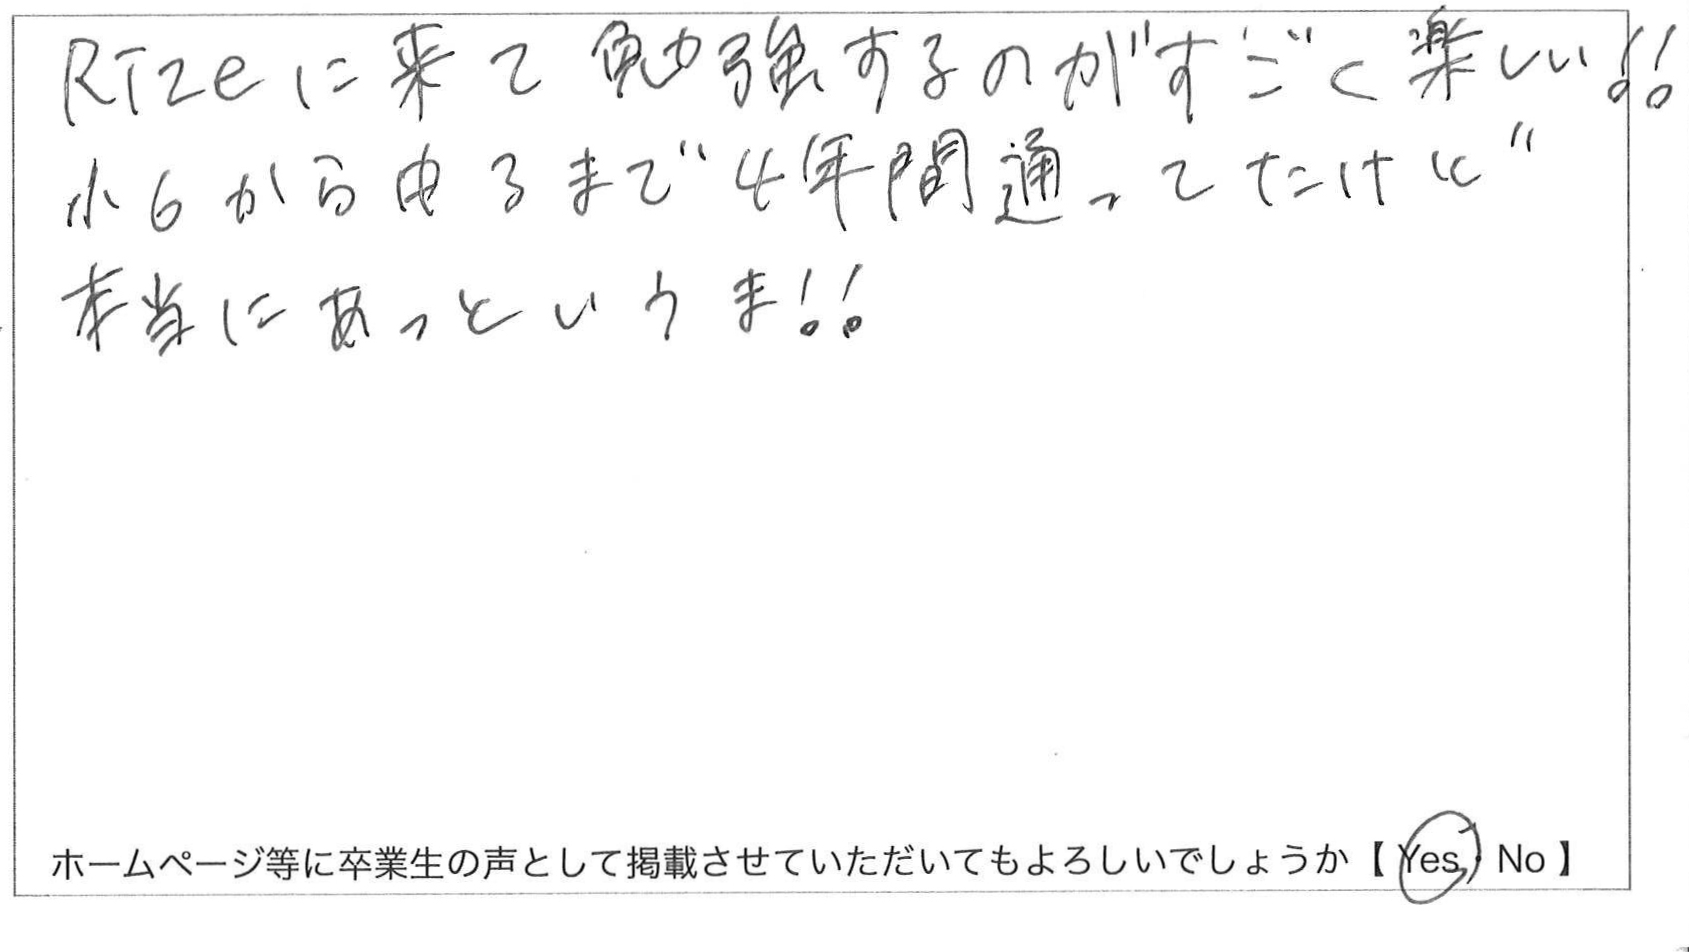 RIZeに来て勉強するのがすごく楽しい!!
小6から中3まで4年間通ってたけど
本当にあっというま!!
ホームページ等に卒業生の声として掲載させていただいてもよろしいでしょうか【 Yes ・ No 】